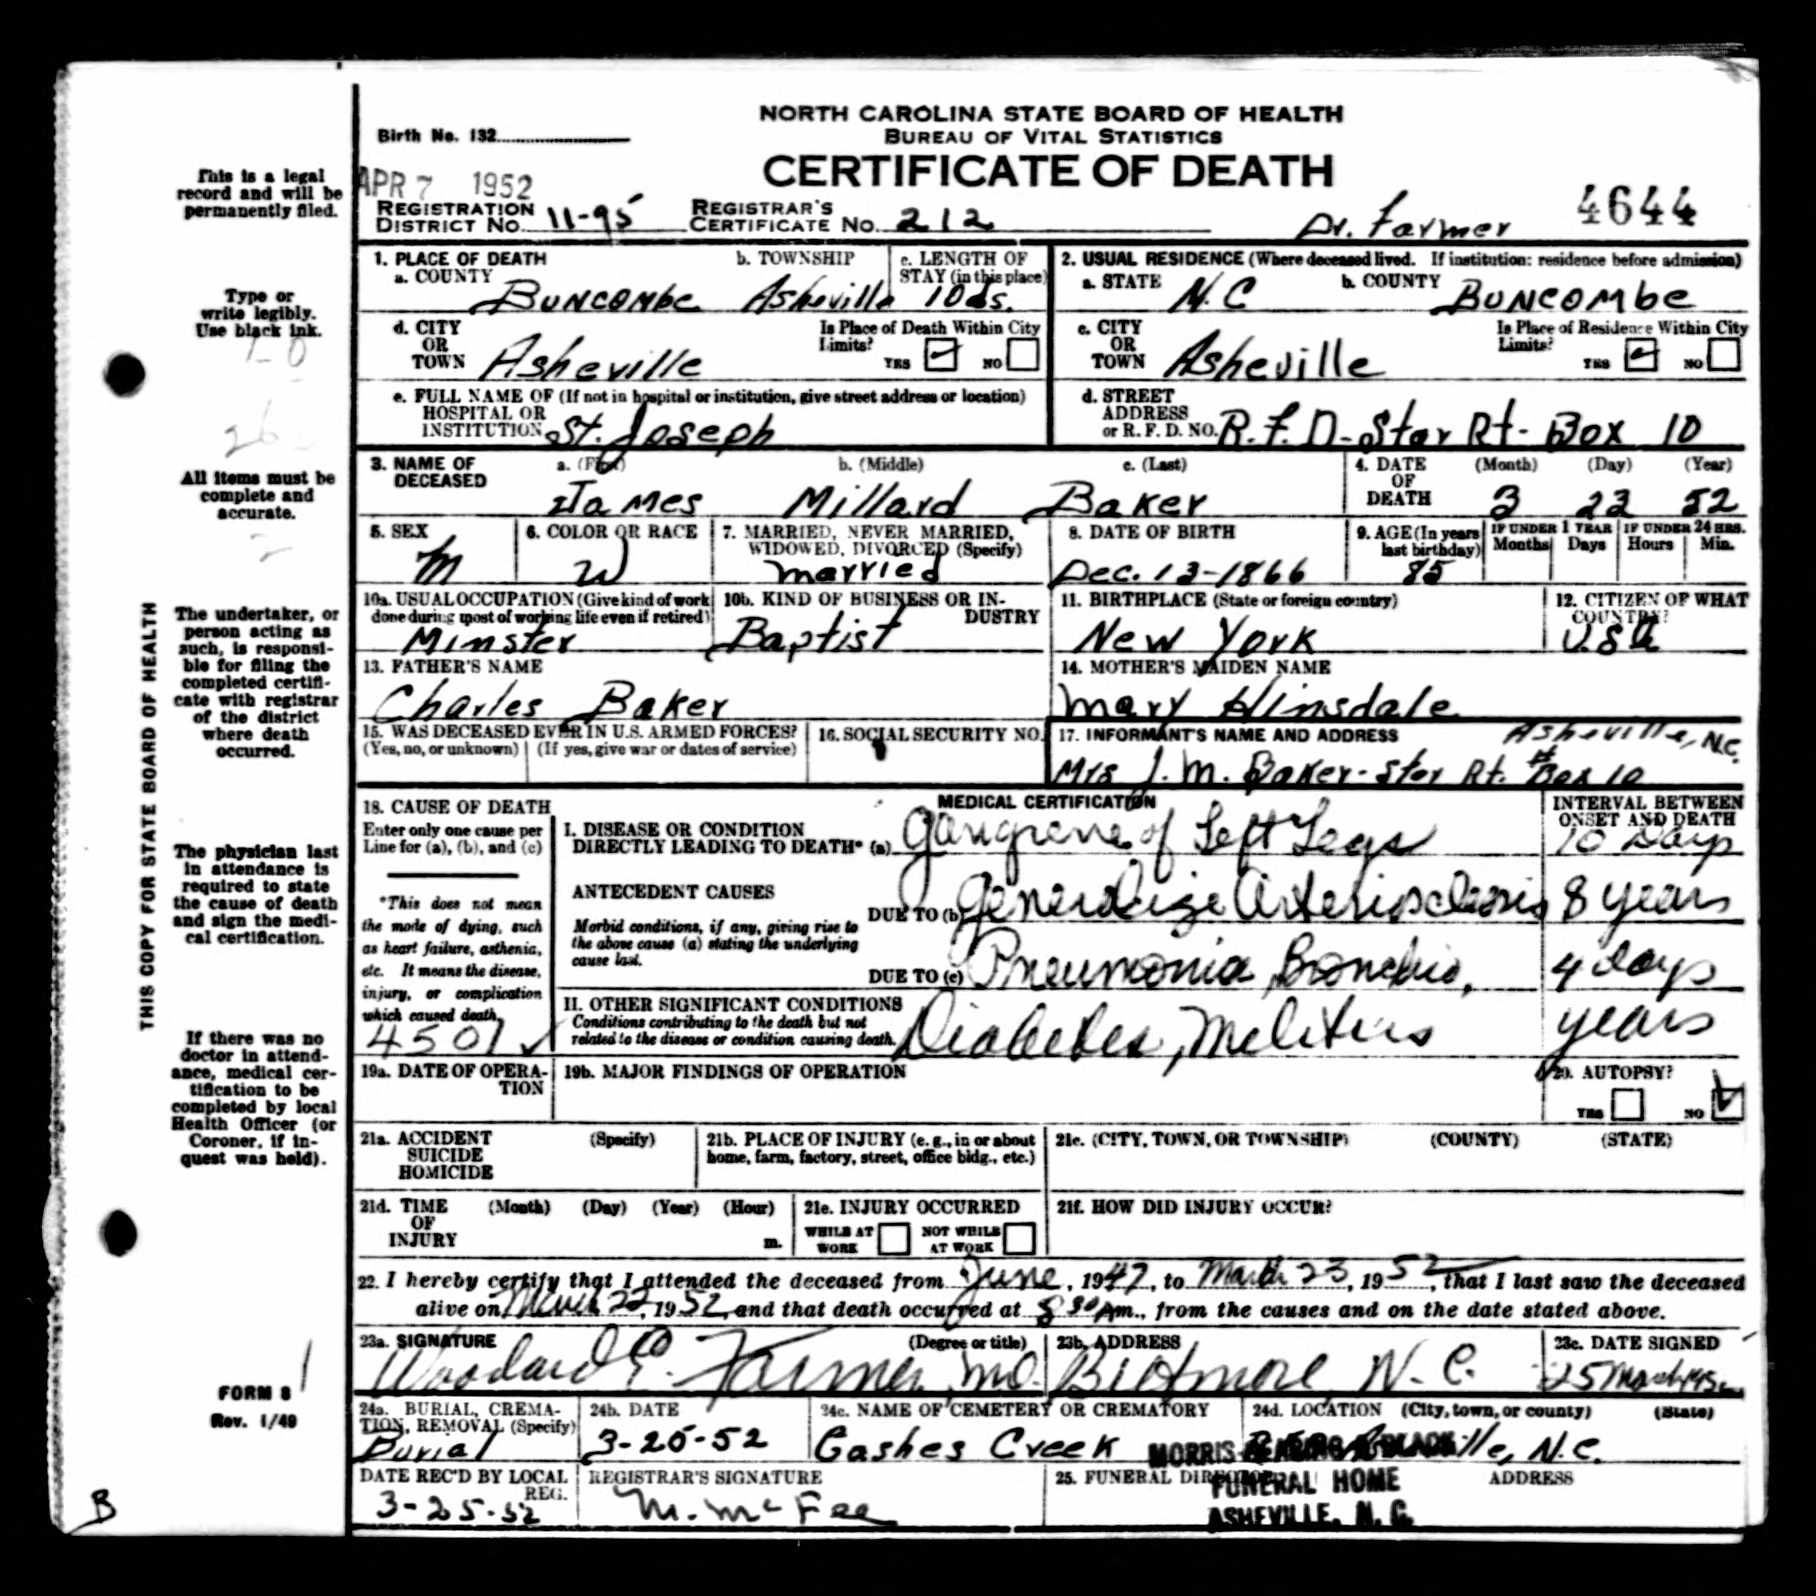 NORTH CAROLINA STATE BOARD OF HEALTH
BUREAU OF VITAL STATISTICS
CERTIFICATE OF DEATH
Birth No. 132
APR 7 1952
REGISTRATION DISTRICT No. 11-95 REGISTRAR'S CERTIFICATE No. 212
Dr. Farmer 4644
This is a legal
record and will be
permanently filed.
Type or
write legibly.
Use black ink.
All items must be
complete and
accurate.
The undertaker, or
person acting as
such, is responsi-
ble for filing the
completed certifi-
cate with registrar
of the district
where death
occurred.
The physician last
in attendance is
required to state
the cause of death
and sign the medi-
cal certification.
If there was no
doctor in attend-
ance, medical cer-
tification to be
completed by local
Health Officer (or
Coroner, if in-
quest was held).
FORM 8
Rev. 1/49
B
THIS COPY FOR STATE BOARD OF HEALTH
1. PLACE OF DEATH
a. COUNTY Buncombe
b. TOWNSHIP Asheville
c. LENGTH OF STAY (in this place) 10 ds.
2. USUAL RESIDENCE (Where deceased lived. If institution: residence before admission)
a. STATE N.C
b. COUNTY Buncombe
d. CITY OR TOWN Asheville
Is Place of Death Within City Limits? YES NO
c. CITY OR TOWN Asheville
Is Place of Residence Within City Limits? YES NO
e. FULL NAME OF (If not in hospital or institution, give street address or location)
HOSPITAL OR INSTITUTION St. Joseph
d. STREET ADDRESS or R. F. D. NO. R.F.D- Star Rt- Box 10
3. NAME OF DECEASED a. (First) b. (Middle) c. (Last)
James Millard Baker
4. DATE OF DEATH (Month) (Day) (Year)
3 23 52
5. SEX M
6. COLOR OR RACE W
7. MARRIED, NEVER MARRIED, WIDOWED, DIVORCED (Specify)
married
8. DATE OF BIRTH
Dec. 13-1866
9. AGE (In years last birthday) 85
IF UNDER 1 YEAR Months Days
IF UNDER 24 HRS. Hours Min.
10a. USUAL OCCUPATION (Give kind of work done during most of working life even if retired)
Minster
10b. KIND OF BUSINESS OR INDUSTRY
Baptist
11. BIRTHPLACE (State or foreign country)
New York
12. CITIZEN OF WHAT COUNTRY?
U.S.A
13. FATHER'S NAME
Charles Baker
14. MOTHER'S MAIDEN NAME
Mary Hinsdale
15. WAS DECEASED EVER IN U.S. ARMED FORCES?
(Yes, no, or unknown) (If yes, give war or dates of service)
16. SOCIAL SECURITY NO.
17. INFORMANT'S NAME AND ADDRESS Asheville, N.C.
Mrs J. M. Baker- Star Rt. # Box 10
18. CAUSE OF DEATH
Enter only one cause per
Line for (a), (b), and (c)
*This does not mean
the mode of dying, such
as heart failure, asthenia,
etc. It means the disease,
injury, or complication
which caused death.
4501
MEDICAL CERTIFICATION
INTERVAL BETWEEN ONSET AND DEATH
I. DISEASE OR CONDITION
DIRECTLY LEADING TO DEATH* (a) Gangrene of Left Legs 10 Days
ANTECEDENT CAUSES
Morbid conditions, if any, giving rise to
the above cause (a) stating the underlying
cause last.
DUE TO (b) Generalize Arteriosclerosis 8 years
DUE TO (c) Pneumonia, Broncho, 4 days
II. OTHER SIGNIFICANT CONDITIONS
Conditions contributing to the death but not
related to the disease or condition causing death.
Diabetes, Melitus years
19a. DATE OF OPERATION
19b. MAJOR FINDINGS OF OPERATION
20. AUTOPSY?
YES NO
21a. ACCIDENT SUICIDE HOMICIDE (Specify)
21b. PLACE OF INJURY (e. g., in or about home, farm, factory, street, office bldg., etc.)
21c. (CITY, TOWN, OR TOWNSHIP) (COUNTY) (STATE)
21d. TIME OF INJURY (Month) (Day) (Year) (Hour) m.
21e. INJURY OCCURRED
WHILE AT WORK NOT WHILE AT WORK
21f. HOW DID INJURY OCCUR?
22. I hereby certify that I attended the deceased from June, 1947, to March 23, 1952, that I last saw the deceased
alive on March 22, 1952, and that death occurred at 8 30 Am., from the causes and on the date stated above.
23a. SIGNATURE (Degree or title)
Woodard E. Farmer, MD.
23b. ADDRESS
Biltmore, N. C.
23c. DATE SIGNED
25 March 1952
24a. BURIAL, CREMATION, REMOVAL (Specify)
Burial
24b. DATE
3-25-52
24c. NAME OF CEMETERY OR CREMATORY
Cashes Creek
24d. LOCATION (City, town, or county) (State)
N.C.
DATE REC'D BY LOCAL REG.
3-25-52
REGISTRAR'S SIGNATURE
M. McFee
25. FUNERAL DIRECTOR ADDRESS
MORRIS GEARING BLACK
FUNERAL HOME
ASHEVILLE, N. C.